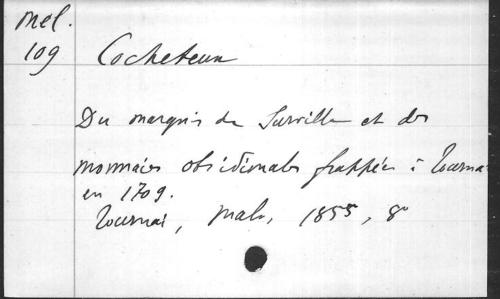 Mel.
109 Cocheteux
Du marquis de Surville et des
monnaies obsidionales frappées à Tournai
en 1709.
Tournai, Malo, 1855, 8°